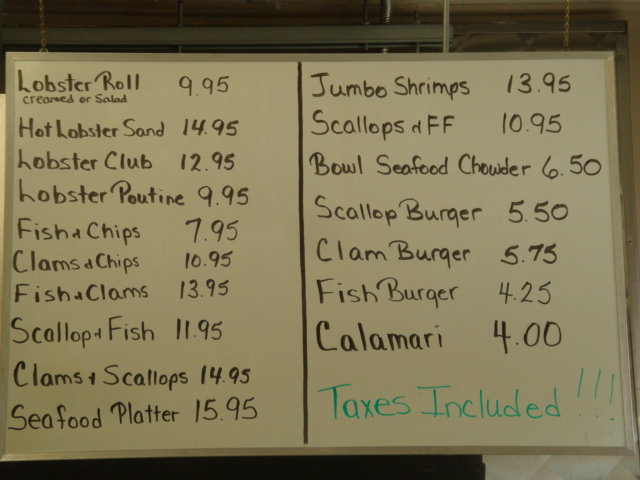 Lobster Roll 9.95
creamed or Salad
Hot Lobster Sand 14.95
Lobster Club 12.95
Lobster Poutine 9.95
Fish & Chips 7.95
Clams & Chips 10.95
Fish & Clams 13.95
Scallop & Fish 11.95
Clams & Scallops 14.95
Seafood Platter 15.95
Jumbo Shrimps 13.95
Scallops & FF 10.95
Bowl Seafood Chowder 6.50
Scallop Burger 5.50
Clam Burger 5.75
Fish Burger 4.25
Calamari 4.00
Taxes Included !!!